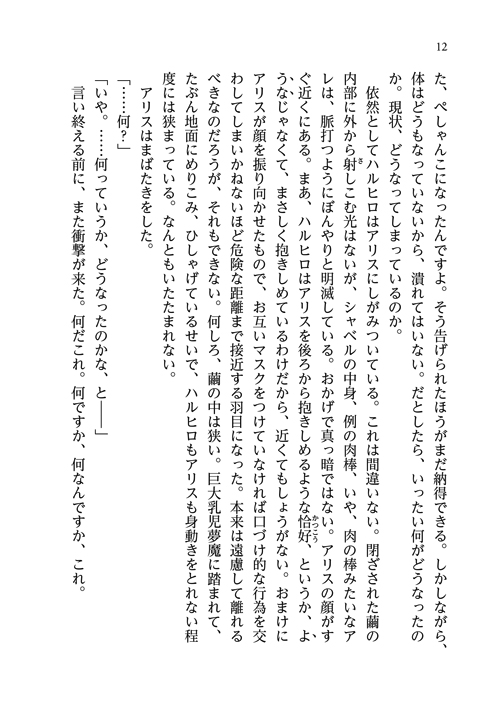 12
た、ぺしゃんこになったんですよ。そう告げられたほうがまだ納得できる。しかしながら、
体はどうもなっていないから、潰れてはいない。だとしたら、いったい何がどうなったの
か。現状、どうなってしまっているのか。
依然としてハルヒロはアリスにしがみついている。これは間違いない。閉ざされた繭の
内部に外から射しこむ光はないが、シャベルの中身、例の肉棒、いや、肉の棒みたいなア
レは、脈打つようにぼんやりと明滅している。おかげで真っ暗ではない。アリスの顔がす
ぐ近くにある。まあ、ハルヒロはアリスを後ろから抱きしめるような恰好、というか、よ
うなじゃなくて、まさしく抱きしめているわけだから、近くてもしょうがない。おまけに
アリスが顔を振り向かせたもので、お互いマスクをつけていなければ口づけ的な行為を交
わしてしまいかねないほど危険な距離まで接近する羽目になった。本来は遠慮して離れる
べきなのだろうが、それもできない。何しろ、繭の中は狭い。巨大乳児夢魔に踏まれて、
たぶん地面にめりこみ、ひしゃげているせいで、ハルヒロもアリスも身動きをとれない程
度には狭まっている。なんともいたたまれない。
アリスはまばたきをした。
「……何？」
「いや。……何っていうか、どうなったのかな、と――」
言い終える前に、また衝撃が来た。何だこれ。何ですか、何なんですか、これ。